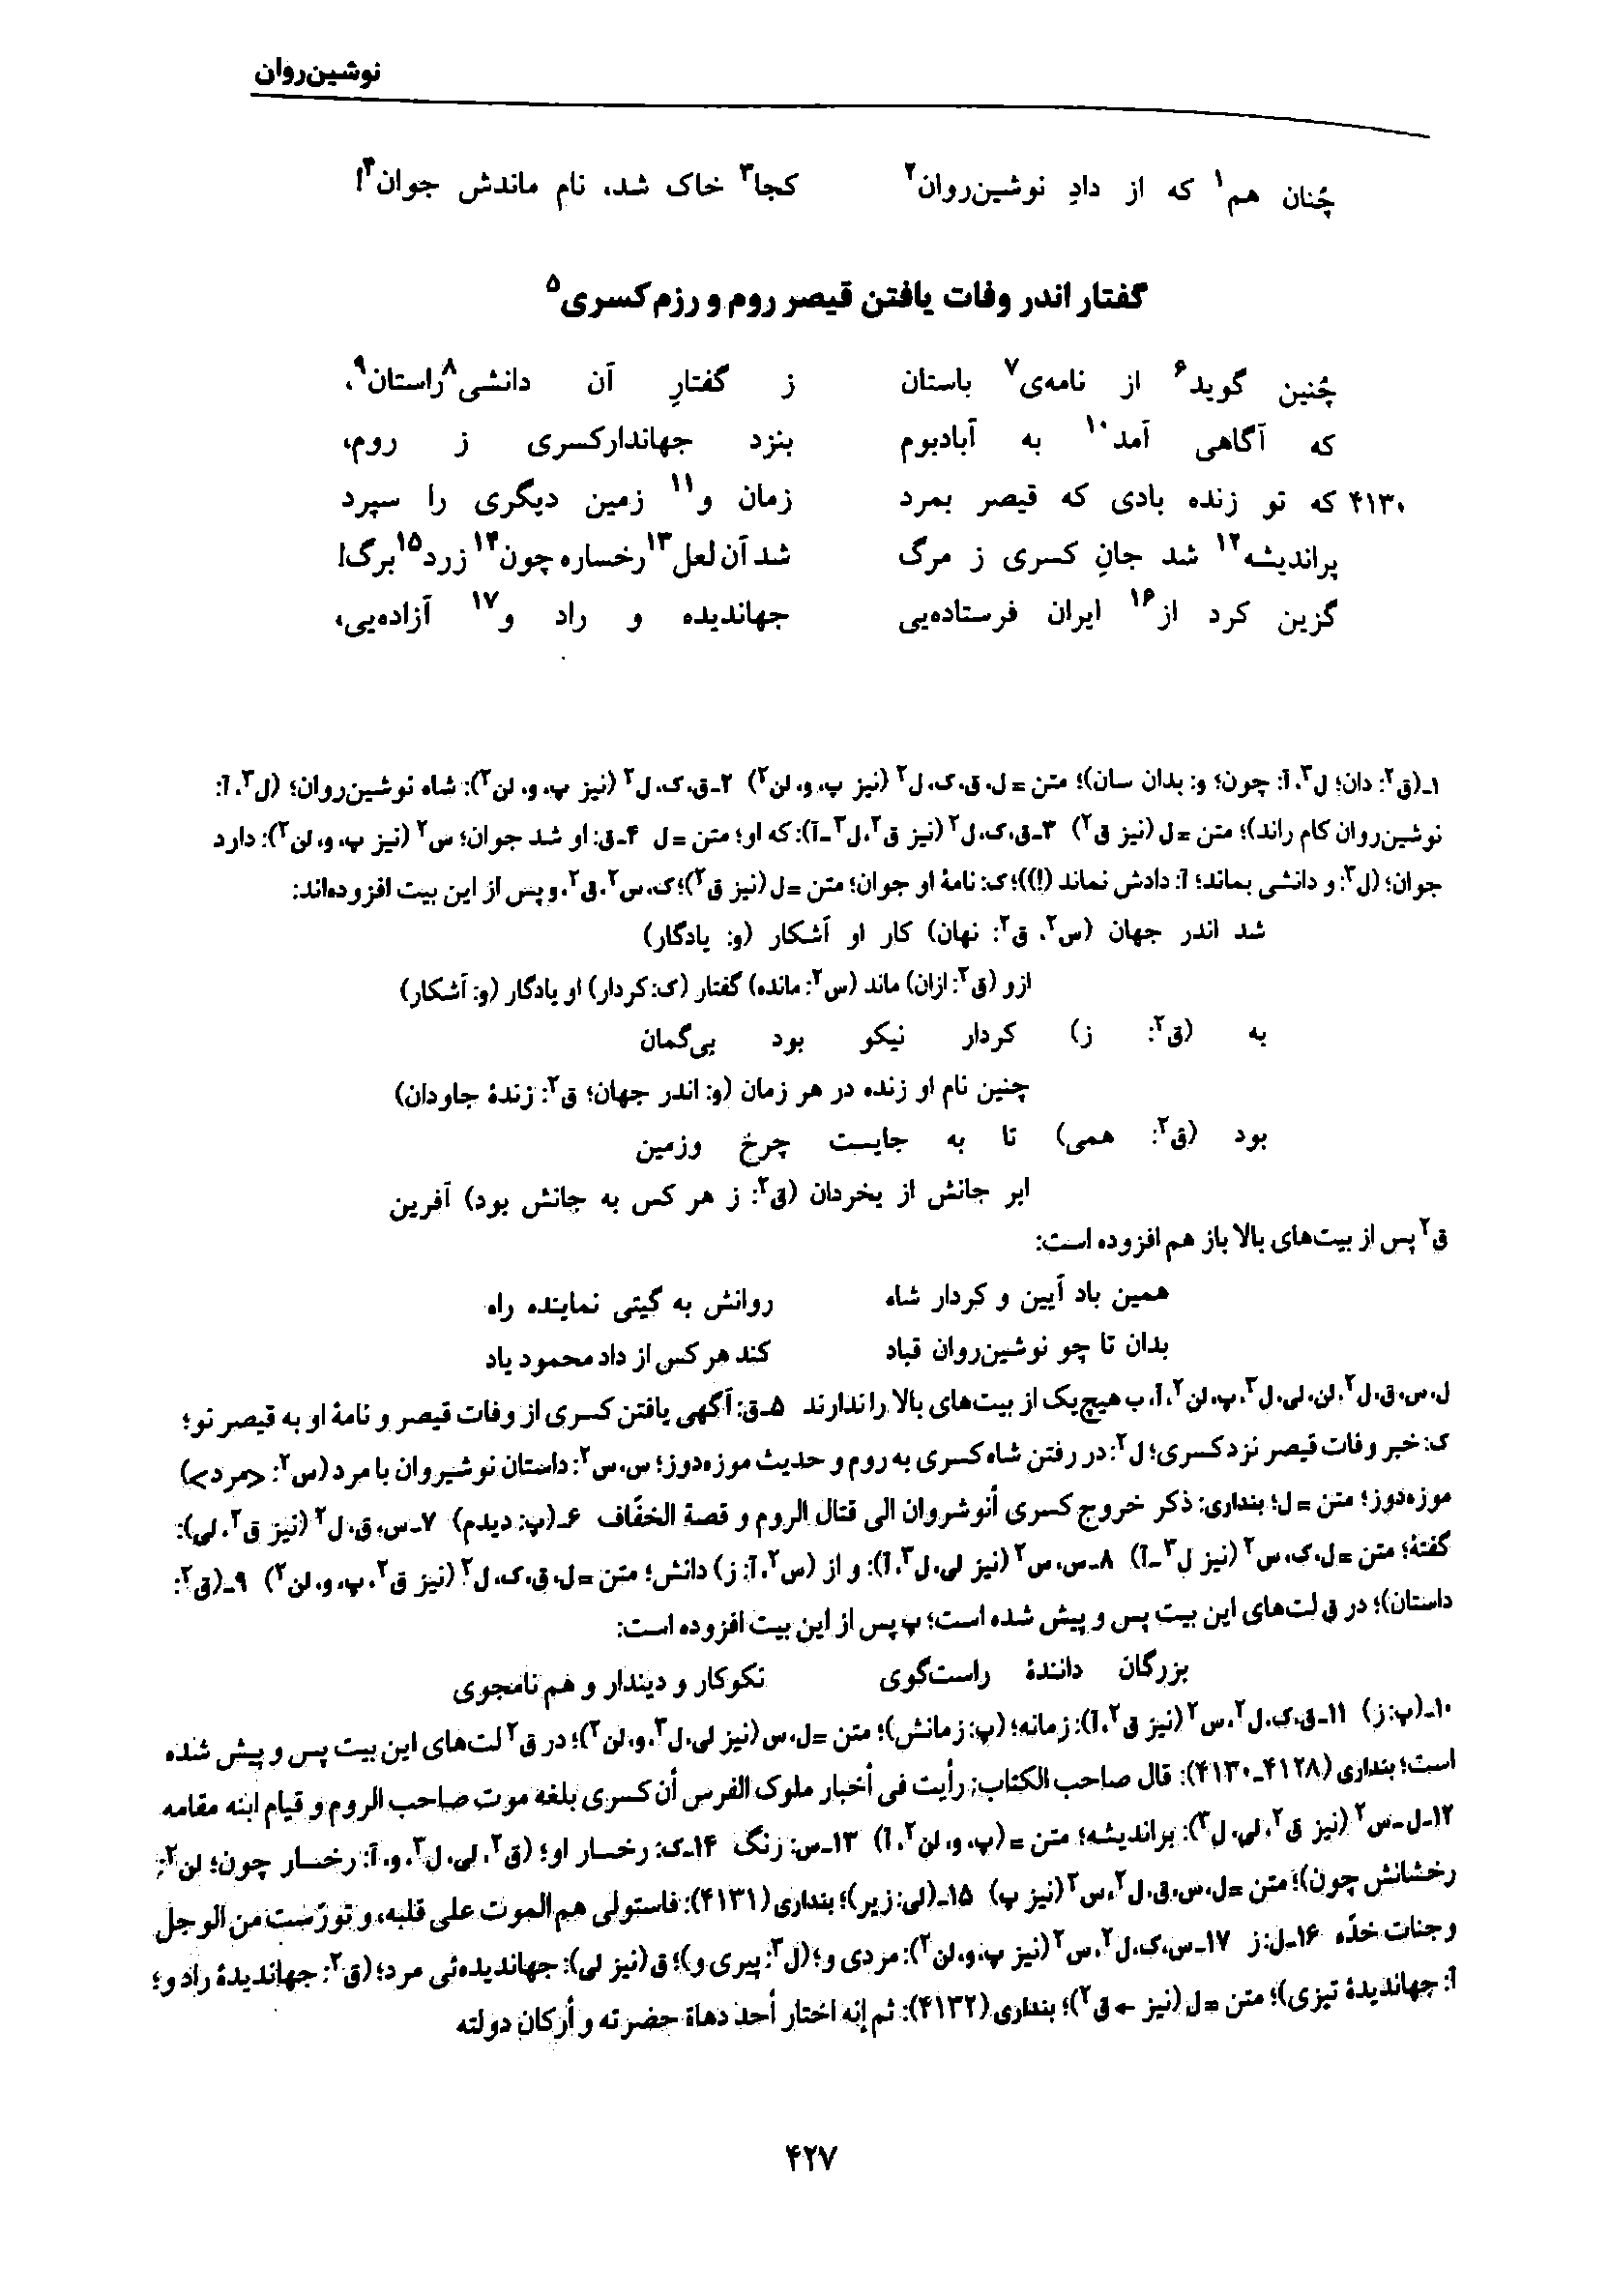 نوشین‌روان
چُنان هم۱ که از دادِ نوشین‌روان۲ کجا۳ خاک شد، نام ماندش جوان۴!
گفتار اندر وفات یافتن قیصر روم و رزم کسری۵
چُنین گوید۶ از نامه‌ی۷ باستان ز گفتارِ آن دانشی۸ راستان۹،
که آگاهی آمد۱۰ به آبادبوم بنزد جهاندارکسری ز روم،
۴۱۳۰ که تو زنده بادی که قیصر بمرد زمان و۱۱ زمین دیگری را سپرد
پراندیشه۱۲ شد جانِ کسری ز مرگ شد آن لعل۱۳ رخساره چون۱۴ زرد۱۵ برگ!
گزین کرد از۱۶ ایران فرستاده‌یی جهاندیده و راد و۱۷ آزاده‌یی،
۱ـ(ق۲: دان؛ ل۳، آ: چون؛ و: بدان سان)؛ متن = ل، ق، ک، ل۲ (نیز پ، و، لن۲) ۲ـ ق، ک، ل۲ (نیز پ، و، لن۲): شاه نوشین‌روان؛ (ل۳، آ:
نوشین‌روان کام راند)؛ متن = ل (نیز ق۲) ۳ـ ق، ک، ل۲ (نیز ق۲، ل۳ ـ آ): که او؛ متن = ل ۴ـ ق: او شد جوان؛ س۲ (نیز پ، و، لن۲): دارد
جوان؛ (ل۳: و دانشی بماند؛ آ: دادش نماند (!))؛ ک: نامهٔ او جوان؛ متن = ل (نیز ق۲)؛ ک، س۲، ق۲، و پس از این بیت افزوده‌اند:
شد اندر جهان (س۲، ق۲: نهان) کار او آشکار (و: یادگار)
ازو (ق۲: ازان) ماند (س۲: مانده) گفتار (ک: کردار) او یادگار (و: آشکار)
به (ق۲: ز) کردار نیکو بود بی‌گمان
چنین نام او زنده در هر زمان (و: اندر جهان؛ ق۲: زندهٔ جاودان)
بود (ق۲: همی) تا به جایست چرخ وزمین
ابر جانش از بخردان (ق۲: ز هر کس به جانش بود) آفرین
ق۲ پس از بیت‌های بالا باز هم افزوده است:
همین باد آیین و کردار شاه روانش به گیتی نماینده راه
بدان تا چو نوشین‌روان قباد کند هر کس از داد محمود یاد
ل، س، ق، ل۲، لن، لی، ل۳، پ، لن۲، آ، ب هیچ‌یک از بیت‌های بالا را ندارند ۵ـ ق: آگهی یافتن کسری از وفات قیصر و نامهٔ او به قیصر نو؛
ک: خبر وفات قیصر نزد کسری؛ ل۲: در رفتن شاه کسری به روم و حدیث موزه‌دوز؛ س، س۲: داستان نوشیروان با مرد (س۲: <مرد>)
موزه‌دوز؛ متن = ل؛ بنداری: ذکر خروج کسری أنوشروان الی قتال الروم و قصة الخفّاف ۶ـ (پ: دیدم) ۷ـ س، ق، ل۲ (نیز ق۲، لی):
گفتهٔ؛ متن = ل، ک، س۲ (نیز ل۳ ـ آ) ۸ـ س، س۲ (نیز لی، ل۳، آ): و از (س۲، آ: ز) دانش؛ متن = ل، ق، ک، ل۲ (نیز ق۲، پ، و، لن۲) ۹ـ (ق۲:
داستان)؛ در ق لت‌های این بیت پس و پیش شده است؛ پ پس از این بیت افزوده است:
بزرگان دانندهٔ راست‌گوی نکوکار و دیندار و هم نامجوی
۱۰ـ (پ: ز) ۱۱ـ ق، ک، ل۲، س۲ (نیز ق۲، آ): زمانه؛ (پ: زمانش)؛ متن = ل، س (نیز لی، ل۳، و، لن۲)؛ در ق۲ لت‌های این بیت پس و پیش شده
است؛ بنداری (۴۱۲۸ـ۴۱۳۰): قال صاحب الکتاب: رأیت فی أخبار ملوک الفرس أن کسری بلغه موت صاحب الروم و قیام ابنه مقامه
۱۲ـ ل ـ س۲ (نیز ق۲، لی، ل۳): براندیشه؛ متن = (پ، و، لن۲، آ) ۱۳ـ س: زنگ ۱۴ـ ک: رخسار او؛ (ق۲، لی، ل۳، و، آ: رخسار چون؛ لن۲:
رخشانش چون)؛ متن = ل، س، ق، ل۲، س۲ (نیز پ) ۱۵ـ (لی: زیر)؛ بنداری (۴۱۳۱): فاستولی هم الموت علی قلبه، و تورّست من الوجل
وجنات خدّه ۱۶ـ ل: ز ۱۷ـ س، ک، ل۲، س۲ (نیز پ، و، لن۲): مردی و؛ (ل۳: پیری و)؛ ق (نیز لی): جهاندیده‌ئی مرد؛ (ق۲: جهاندیدهٔ راد و؛
آ: جهاندیدهٔ تیزی)؛ متن = ل (نیز ← ق۲)؛ بنداری (۴۱۳۲): ثم إنه اختار أحد دهاة حضرته و أرکان دولته
۴۲۷